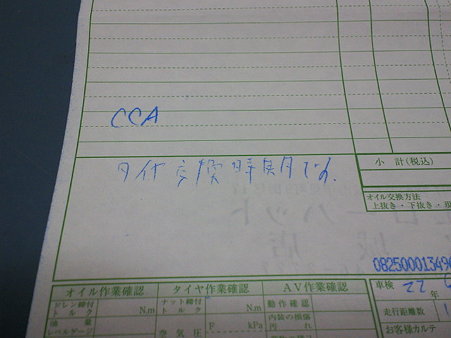 CCA
タイヤ交換時期です。
小 計(税込)
オイル交換方法
上抜き・下抜き・
08250001349
オイル作業確認 タイヤ作業確認 AV作業確認
車検 22 年
ドレン締付トルク N.m ナット締付トルク N.m 動作確認
走行距離数 1
油量 空気圧 F kPa 内装の損傷汚れ
レベルゲージ
お客様カルテ